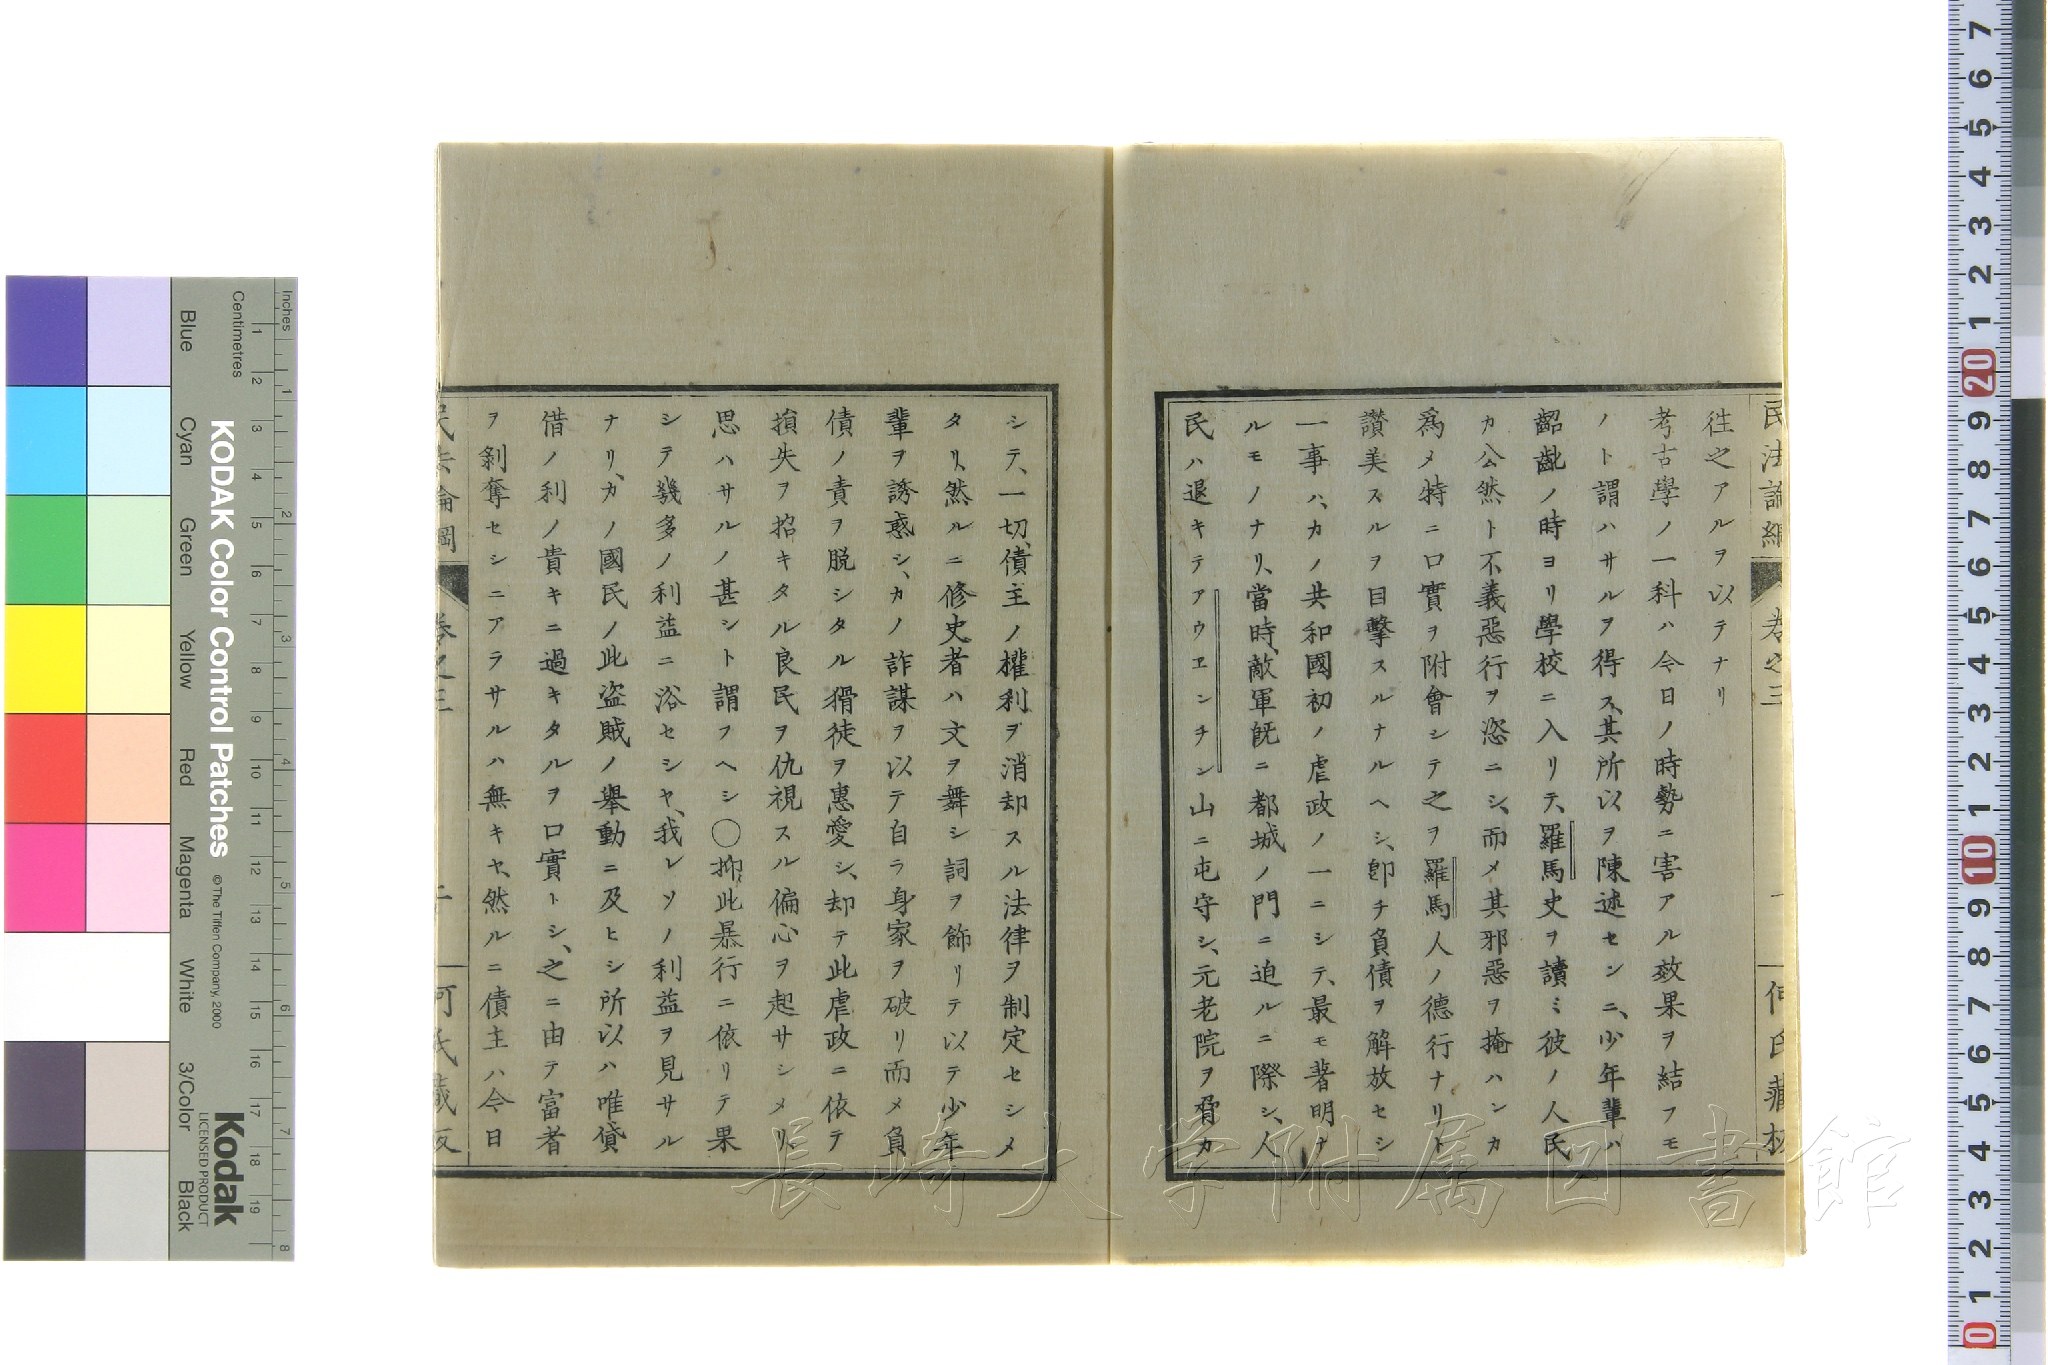 民法論綱
卷之三
一
何氏藏板
徃之アルヲ以テナリ
考古學ノ一科ハ今日ノ時勢ニ害アル效果ヲ結フモ
ノト謂ハサルヲ得ス、其所以ヲ陳述センニ、少年輩ハ
齠齔ノ時ヨリ學校ニ入リテ、羅馬史ヲ讀ミ彼ノ人民
カ公然ト不義惡行ヲ恣ニシ、而メ其邪惡ヲ掩ハンカ
爲メ特ニ口實ヲ附會シテ之ヲ羅馬人ノ德行ナリト
讃美スルヲ目擊スルナルヘシ、卽チ負債ヲ解放セシ
一事ハ、カノ共和國初ノ虐政ノ一ニシテ、最モ著明ナ
ルモノナリ、當時、敵軍旣ニ都城ノ門ニ迫ルニ際シ、人
民ハ退キテアウヱンチン山ニ屯守シ、元老院ヲ脅カ
シテ、一切、債主ノ權利ヲ消却スル法律ヲ制定セシメ
タリ、然ルニ修史者ハ文ヲ舞シ詞ヲ飾リテ以テ少年
輩ヲ誘惑シ、カノ詐謀ヲ以テ自ラ身家ヲ破リ而メ負
債ノ責ヲ脱シタル猾徒ヲ惠愛シ、却テ此虐政ニ依テ
損失ヲ招キタル良民ヲ仇視スル偏心ヲ起サシメリ、
思ハサルノ甚シト謂フヘシ〇抑、此暴行ニ依リテ果
シテ幾多ノ利益ニ浴セシヤ、我レソノ利益ヲ見サル
ナリ、カノ國民ノ此盜賊ノ舉動ニ及ヒシ所以ハ唯貸
借ノ利ノ貴キニ過キタルヲ口實トシ、之ニ由テ富者
ヲ剝奪セシニアラサルハ無キヤ、然ルニ債主ハ今日
民法論綱
卷之三
何氏藏板
長崎大学附属図書館
KODAK Color Control Patches
© The Tiffen Company, 2000
Kodak
LICENSED PRODUCT
Inches
Centimetres
Blue
Cyan
Green
Yellow
Red
Magenta
White
3/Color
Black
1 2 3 4 5 6 7 8
1 2 3 4 5 6 7 8 9 10 11 12 13 14 15 16 17 18 19
7 6 5 4 3 2 1 20 9 8 7 6 5 4 3 2 1 10 9 8 7 6 5 4 3 2 1 0